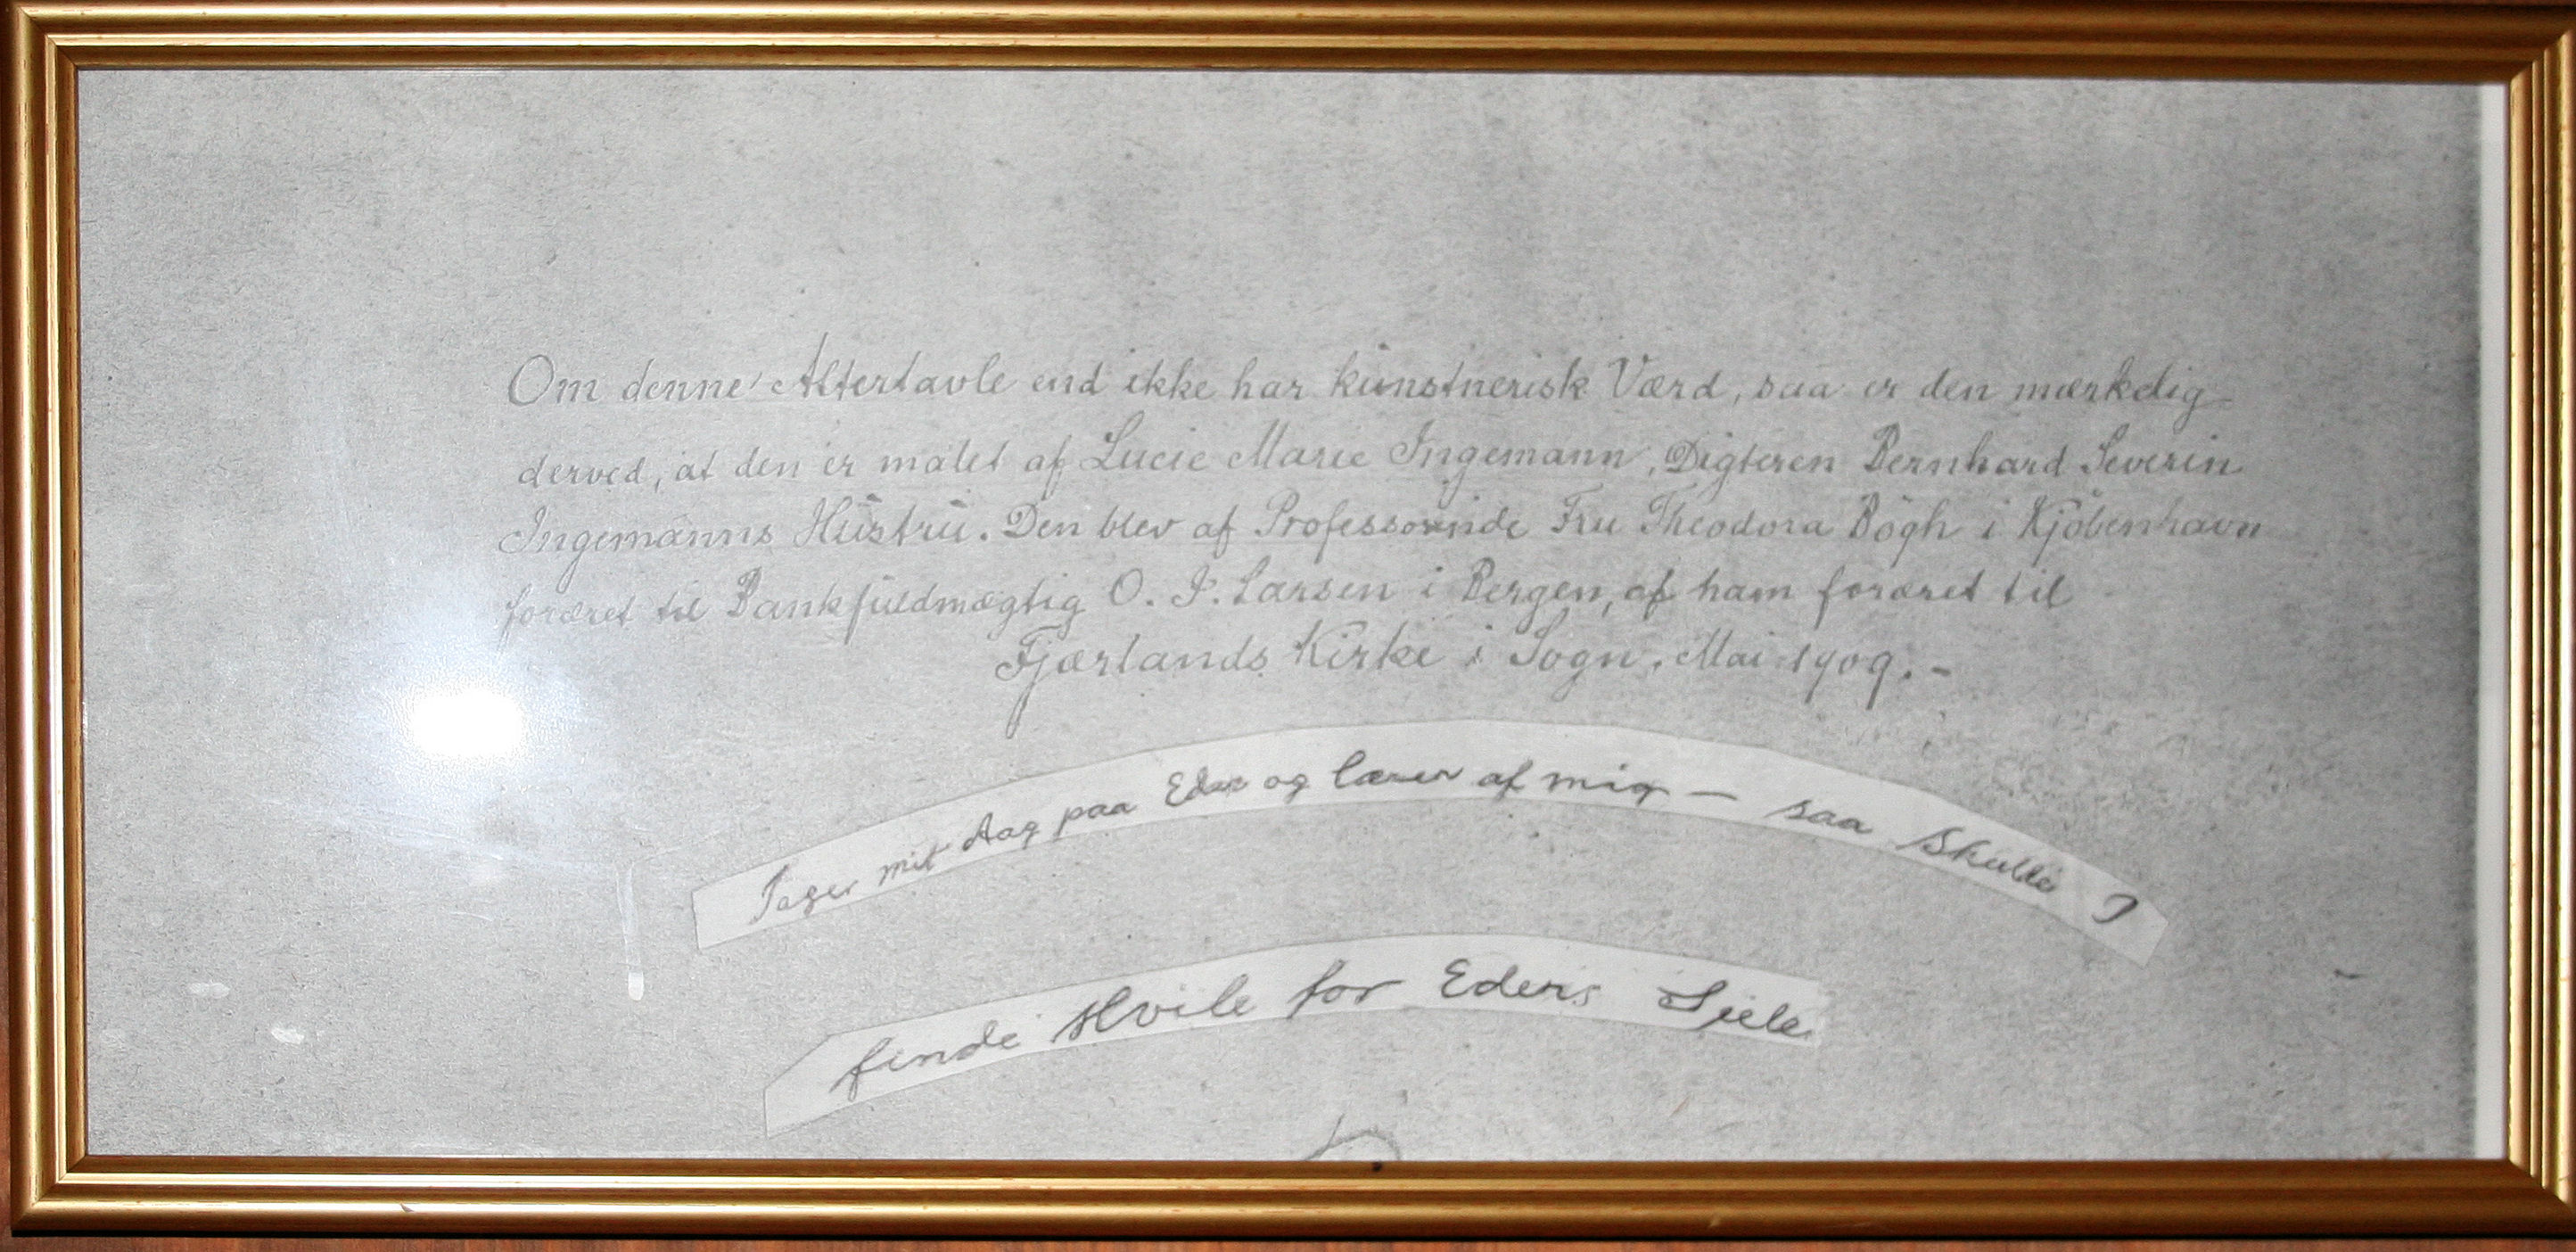 Om denne Altertavle end ikke har kunstnerisk Værd, saa er den mærkelig
derved, at den er malet af Lucie Marie Ingemann, Digteren Bernhard Severin
Ingemanns Hustru. Den blev af Professorinde Fru Theodora Bögh i Kjöbenhavn
foræret til Bankfuldmægtig O. J. Larsen i Bergen, af ham foræret til
Fjærlands Kirke i Sogn, Mai 1909. -
Tager mit Aag paa Eder og lærer af mig — saa skulle I
finde Hvile for Eders Sjele